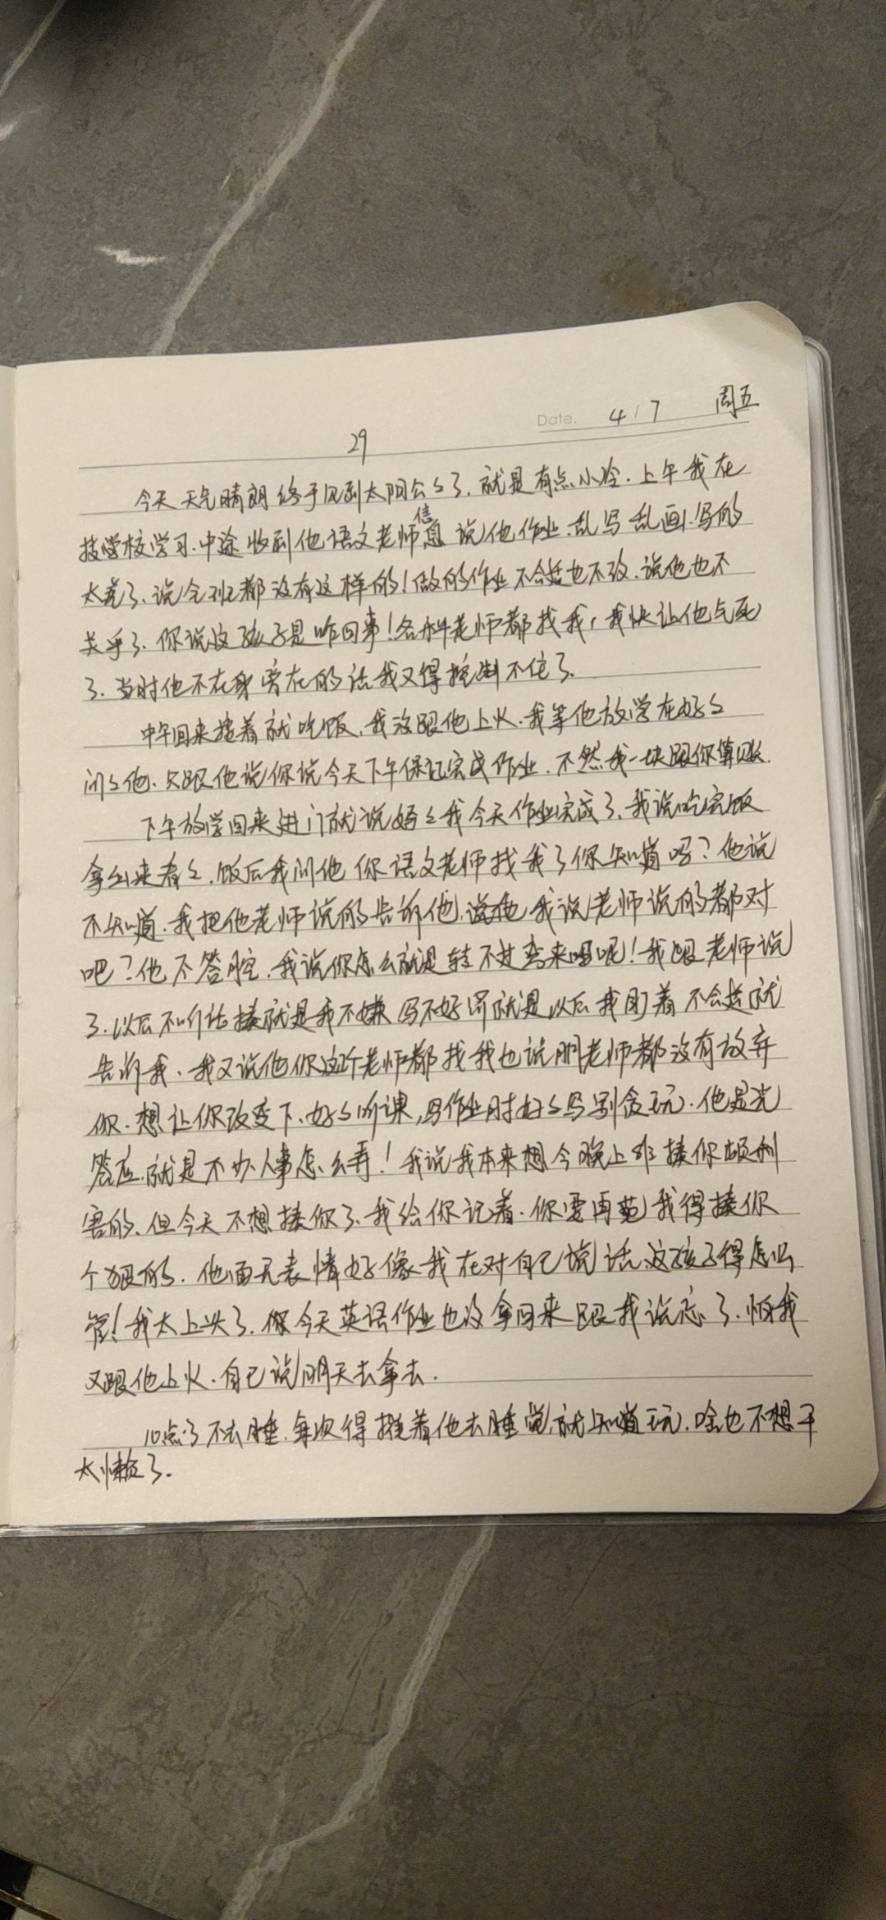 Date. 4/7 周五
29
今天天气晴朗终于见到太阳公公了.就是有点小冷.上午我在
技学校学习.中途收到他语文老师信息说他作业.乱写乱画.写的
太差了.说全班都没有这样的!做的作业不合适也不改.说他也不
关乎了.你说这孩子是咋回事!各科老师都找我,我快让他气死
了.当时他不在身旁在的话我又得控制不住了.
中午回来接着就吃饭.我没跟他上火.我等他放学在好好
问问他.只跟他说你说今天下午保证完成作业.不然我一块跟你算账.
下午放学回来进门就说妈妈我今天作业完成了.我说吃完饭
拿出来看看.饭后我问他你语文老师找我了你知道吗?他说
不知道.我把他老师说的告诉他.我说老师说的都对
吧?他不答腔.我说你怎么就是转不过弯来呢!我跟老师说
了.以后不听话揍就是我不嫌写不好罚就是以后我盯着不合适就
告诉我.我又说他你这个老师都找我也说明老师都没有放弃
你.想让你改变下.好好听课,写作业时好好写别贪玩.他是光
答应.就是不办人事怎么弄!我说我本来想今晚上非揍你顿利
害的.但今天不想揍你了.我给你记着.你要再犯我得揍你
个狠的.他面无表情好像我在对自己说话.这孩子得怎么
管!我太上头了.你今天英语作业也没拿回来跟我说忘了.怕我
又跟他上火.自己说明天去拿去.
10点了不去睡.每次得推着他去睡觉.就知道玩.啥也不想干
太懒了.